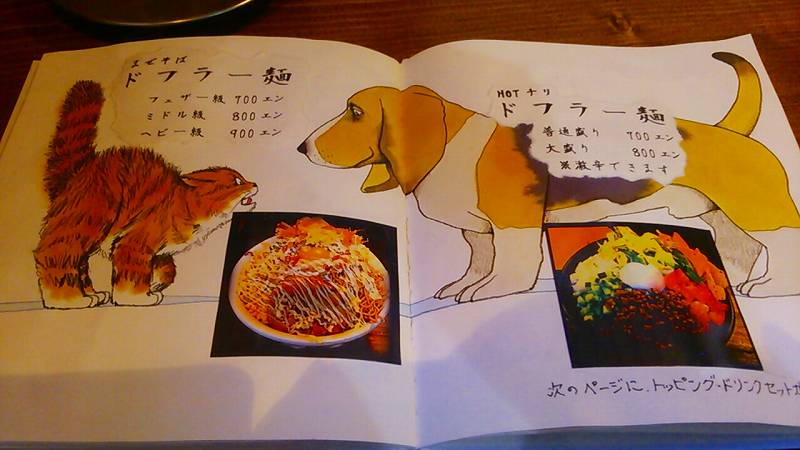 まぜそば
ドフラー麺
フェザー級 700エン
ミドル級 800エン
ヘビー級 900エン
HOTチリ
ドフラー麺
普通盛り 700エン
大盛り 800エン
※激辛できます
次のページに、トッピング・ドリンクセットが